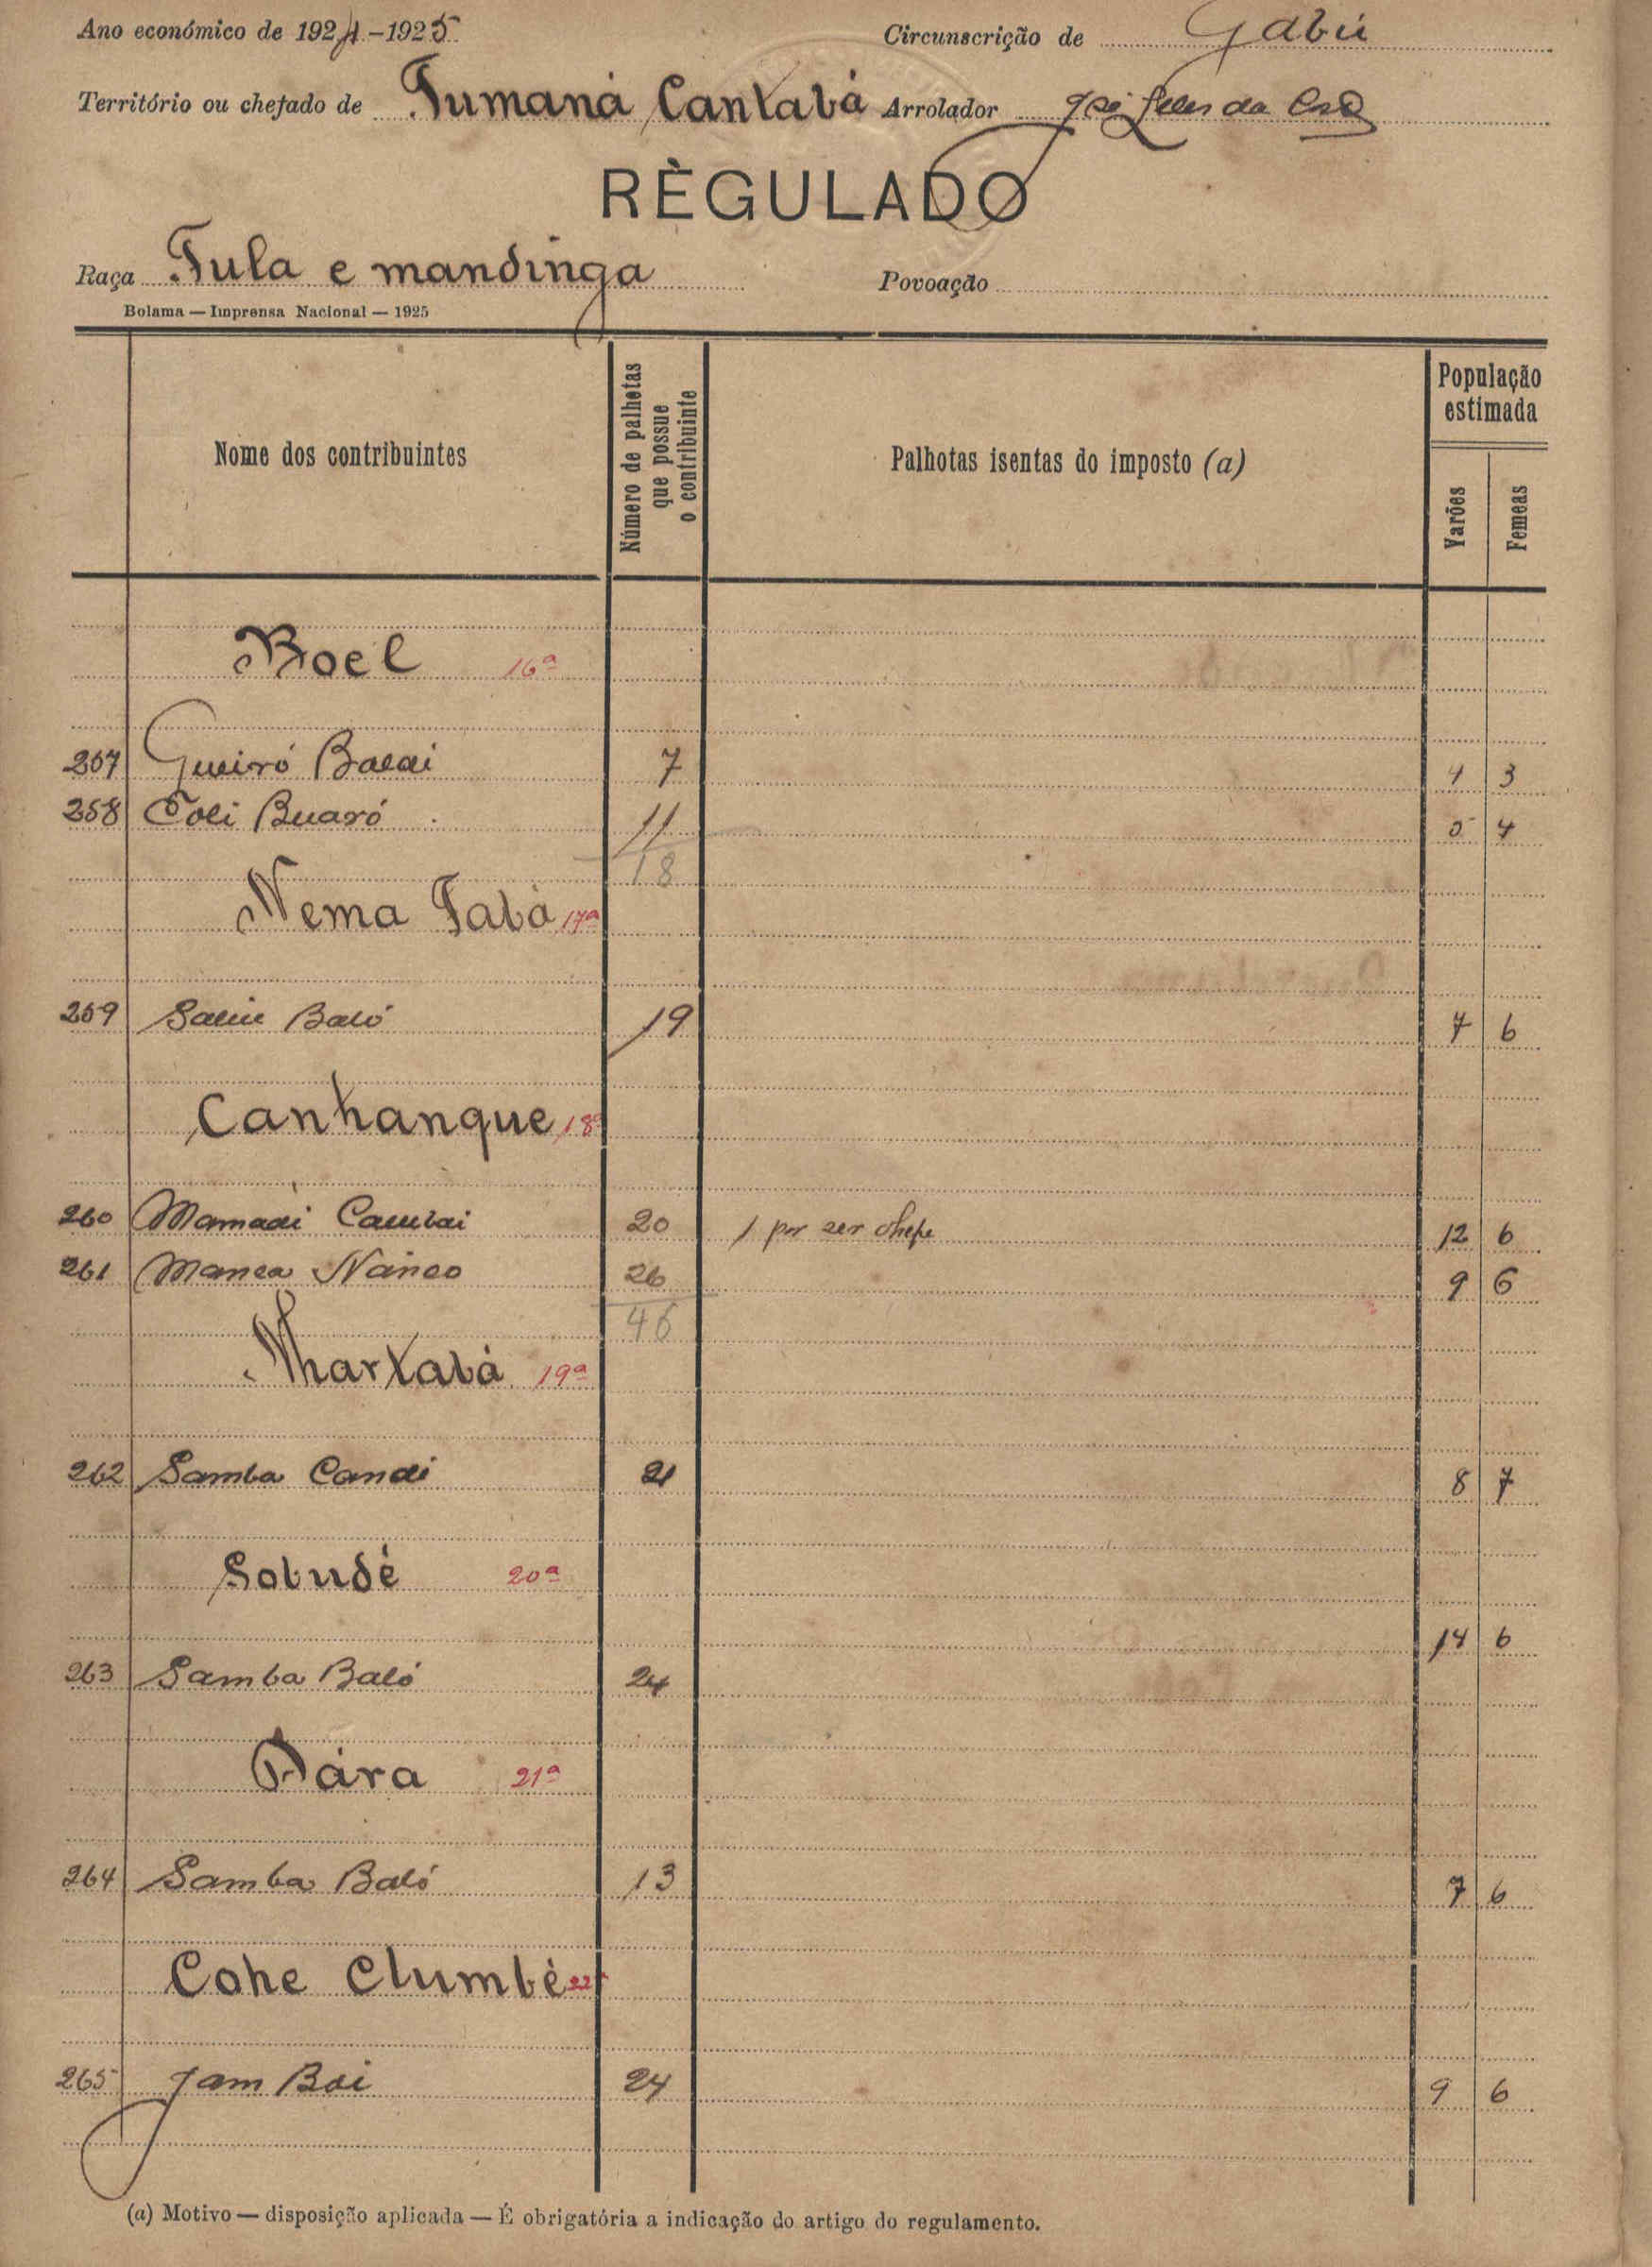 Ano económico de 1924-1925 Circunscrição de Gabú
Território ou chefado de Tumaná Cantabá Arrolador José da
RÈGULADO
Raça Fula e mandinga Povoação
Bolama — Imprensa Nacional — 1925
Nome dos contribuintes Número de palhetas que possue o contribuinte Palhotas isentas do imposto (a) População estimada Varões Femeas
Boel 16ª
257 Gueiró Baldi 7 4 3
258 Coli Buaró 11 5 4
18
Nema Tabá 17ª
259 Baló 19 7 6
Canhanque 18ª
260 Mamadi Cambai 20 1 por ser chefe 12 6
261 Manca Nanco 26 9 6
46
Nhartabá 19ª
262 Samba Candi 21 8 7
Sobudé 20ª
14 6
263 Samba Baló 24
Dára 21ª
264 Samba Baló 13 7 6
Cohe Clumbé 22ª
265 Jam Boi 24 9 6
(a) Motivo — disposição aplicada — É obrigatória a indicação do artigo do regulamento.